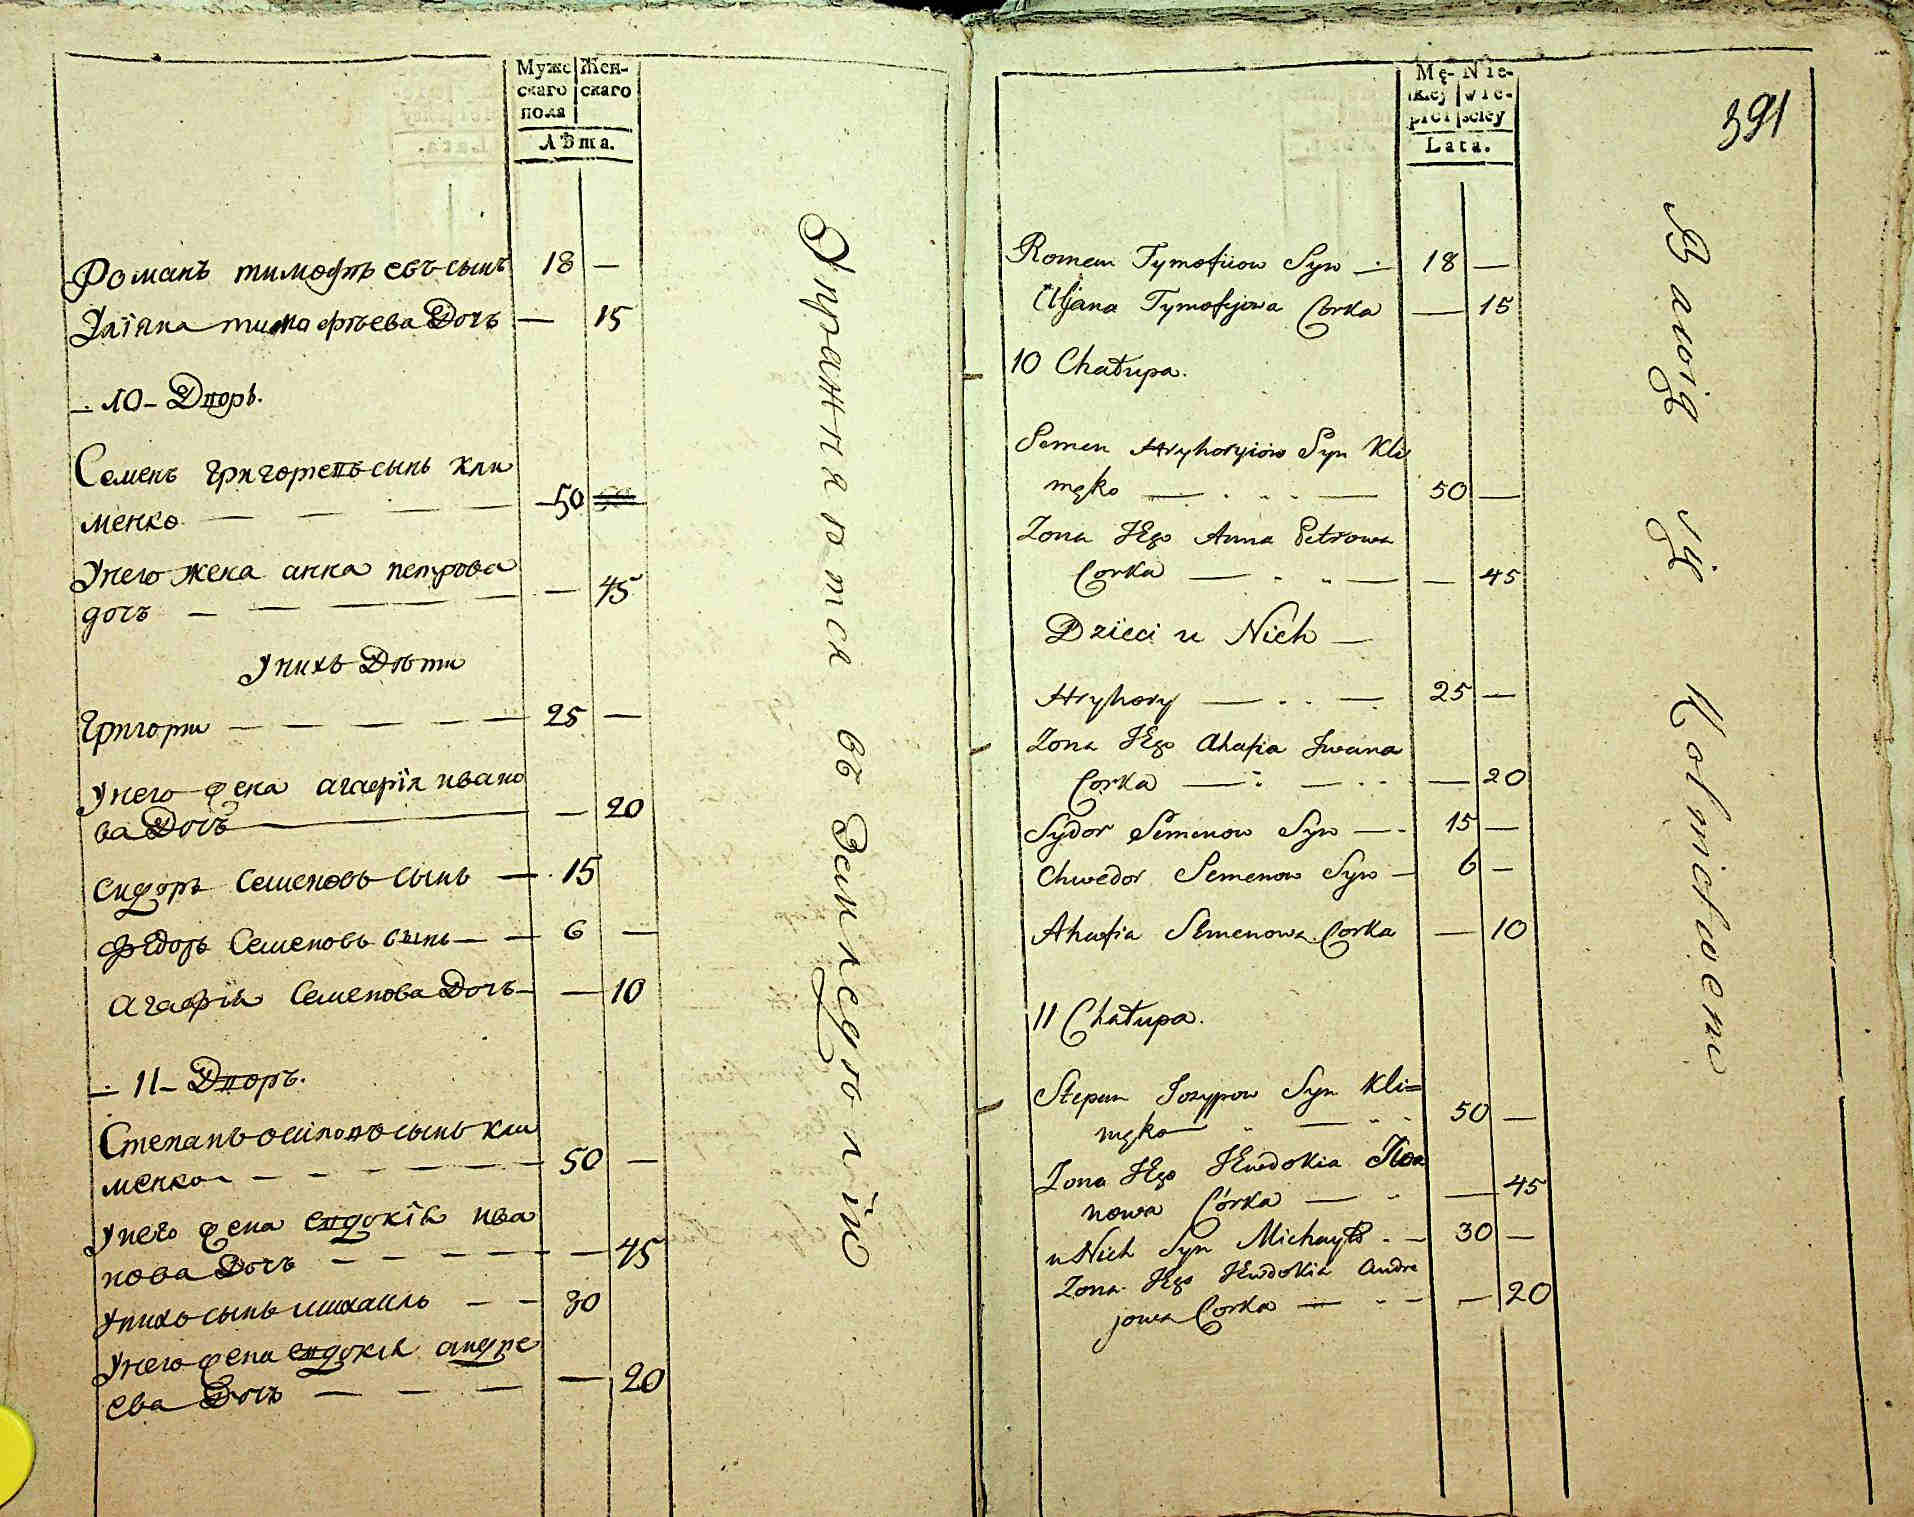 Муже Жен-
скаго скаго
пола
Лѣта.
Романъ тимофѣевъ сынъ 18 —
Улїяна тимофѣева Дочь — 15
10 - Дворъ.
Семенъ григоревъ сынъ кли
менко — — — — 50 —
Унего жена анна петрова
дочь — — — — — 45
Унихъ Дѣти
григори — — — — — 25 —
Унего жена агафїя ивано
ва Дочь — — 20
сидоръ семеновъ сынъ — 15
федоръ семеновъ сынъ — — 6 —
агафїя семенова Дочь — — 10
11 - Дворъ.
Степанъ осиповъ сынъ кли
менко — — — — — 50 —
Унего жена евдокїя ива
нова Дочь — — — — — 45
Унихъ сынъ михаилъ — — 30
Унего жена евдокїя андре
ева Дочь — — — — 20
Упражняются въ Земледелїи
Mę- Nie-
skiey wie-
płci sciey
Lata.
391
Roman Tymofiiow Syn — 18 —
Uljana Tymofijowa Corka — 15
10 Chałupa.
Semen Hryhoryiow Syn Kli
męko — — 50 —
Zona JEgo Anna Petrowa
Corka — — — 45
Dzieci u Nich —
Hryhory — — 25 —
Zona JEgo Ahafia Jwana
Corka — — — 20
Sydor Semenow Syn — 15 —
Chwedor Semenow Syn — 6 —
Ahafia Semenowa Corka — 10
11 Chałupa.
Stepan Jozypow Syn Kli=
męko — — 50 —
Zona JEgo JEwdokia Jwa
nowa Córka — — 45
u Nich Syn Michayło — 30 —
Zona JEgo JEwdokia Andre
jowa Corka — — — 20
Bawią się Rolnictwem